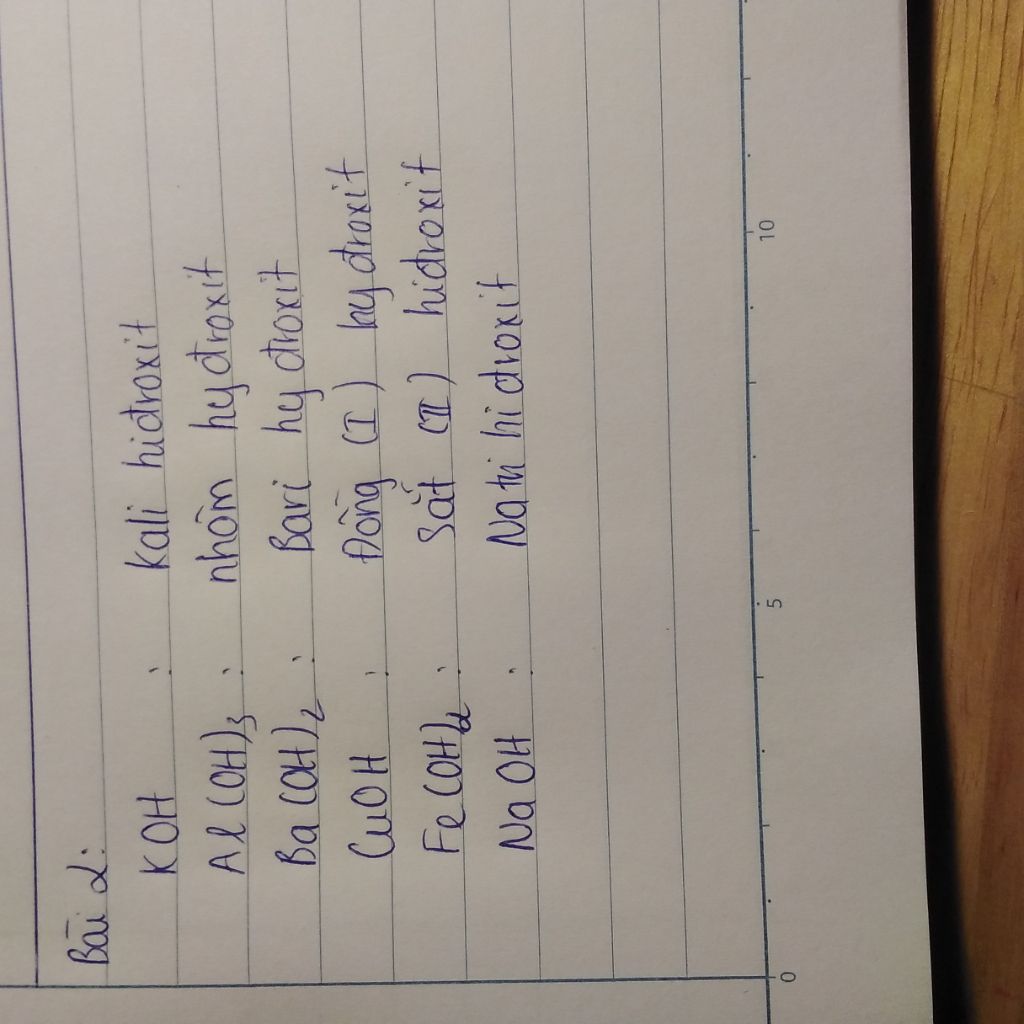 Bài 2:
KOH : Kali hiđroxit
Al(OH)3 : nhôm hyđroxit
Ba(OH)2 : Bari hyđroxit
CuOH : Đồng (I) hyđroxit
Fe(OH)2 : Sắt (II) hiđroxit
NaOH : Natri hiđroxit
0 5 10